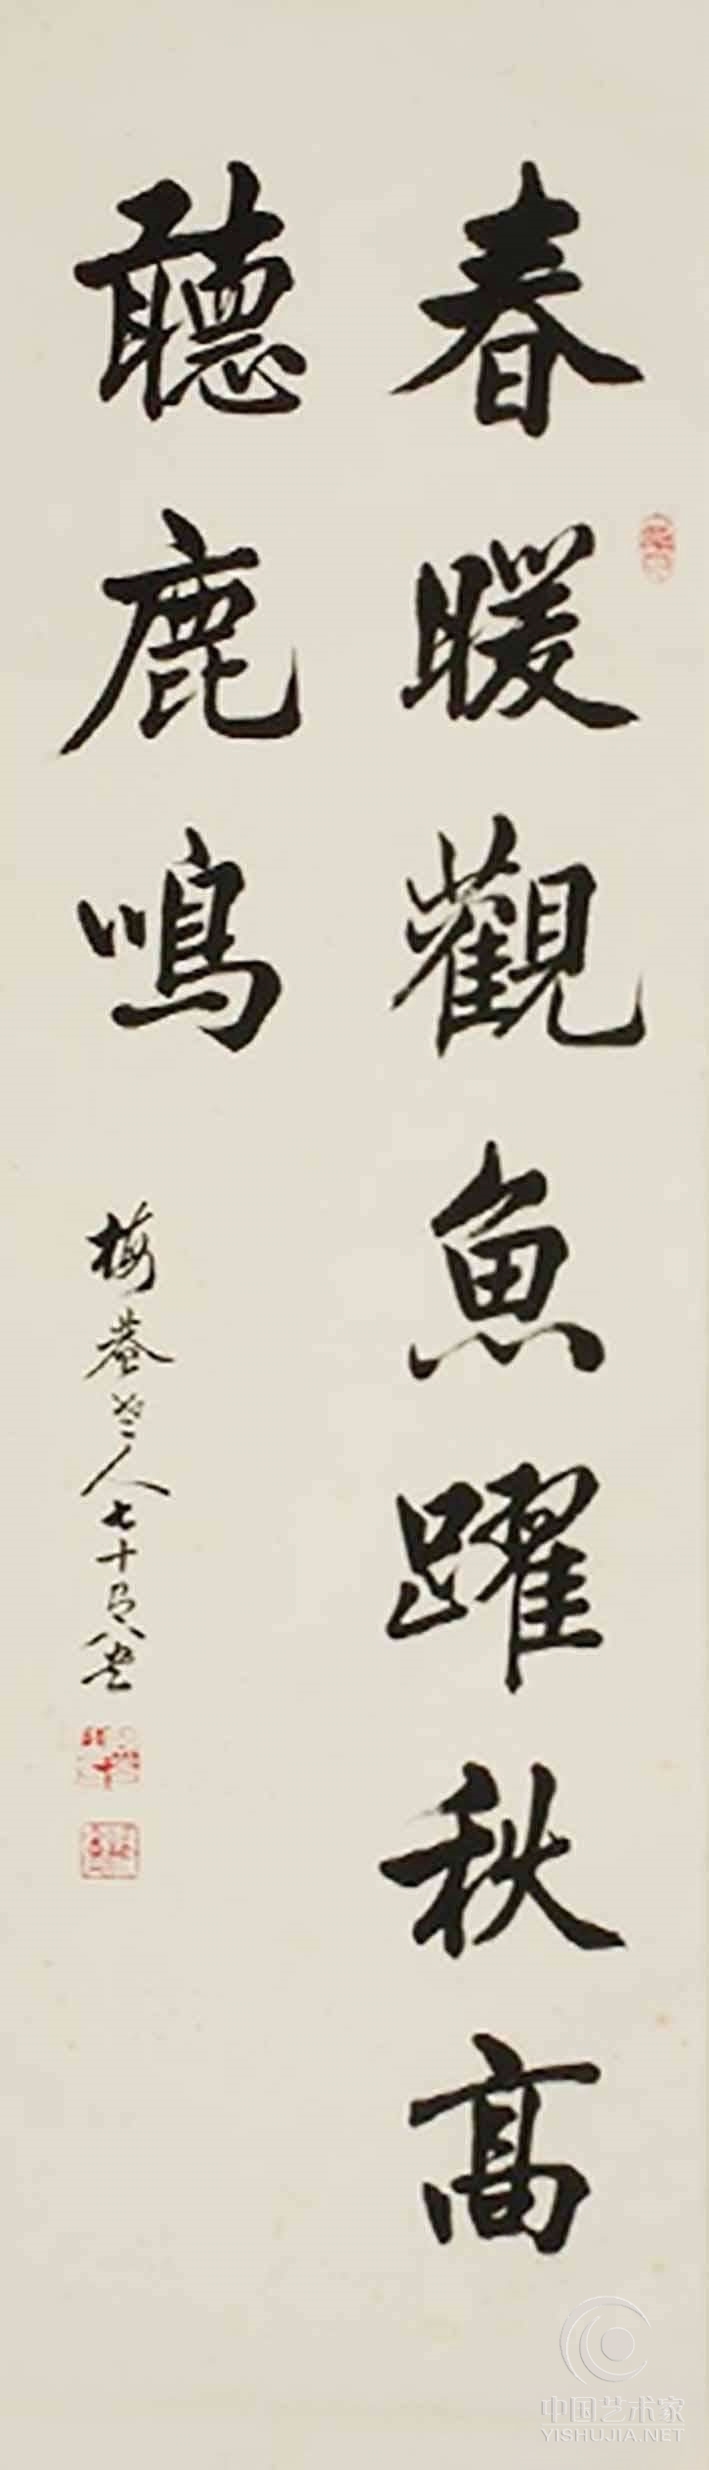 春暖觀魚躍秋高
聽鹿鳴
梅菴老人七十
中国艺术家
YISHUJIA.NET